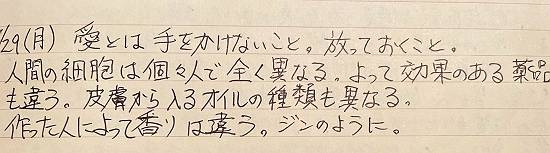 /29(月) 愛とは手をかけないこと。放っておくこと。
人間の細胞は個々人で全く異なる。よって効果のある薬品
も違う。皮膚から入るオイルの種類も異なる。
作った人によって香りは違う。ジンのように。